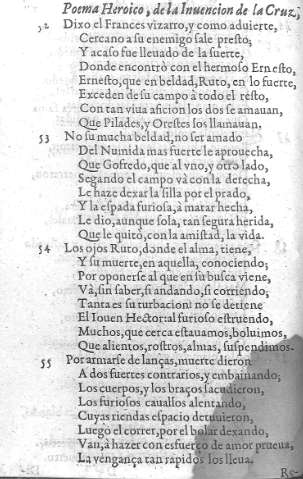 Poema Heroico, de la Inuencion de la Cruz,
52 Dixo el Frances vizarro, y como aduierte,
Cercano a su enemigo sale presto;
Y acaso fue lleuado de la suerte,
Donde encontrò con el hermoso Ernesto,
Ernesto, que en beldad, Ruto, en lo fuerte,
Exceden de su campo à todo el resto,
Con tan viua aficion los dos se amauan,
Que Pilades, y Orestes los llamauan.
53 No su mucha beldad, no ser amado
Del Numida mas fuerte le aprouecha,
Que Gofredo, que al vno, y otro lado,
Segando el campo và con la derecha,
Le haze dexar la silla por el prado,
Y la espada furiosa, à matar hecha,
Le dio, aunque sola, tan segura herida,
Que le quitò, con la amistad, la vida.
54 Los ojos Ruto, donde el alma, tiene,
Y su muerte, en aquella, conociendo;
Por oponerse al que en su busca viene,
Và, sin saber, si andando, si corriendo;
Tanta es su turbacion: no se detiene
El Iouen Hector: al furioso estruendo,
Muchos, que cerca estauamos, boluimos,
Que alientos, rostros, almas, suspendimos.
55 Por armarse de lanças, muerte dieron
A dos fuertes contrarios, y embainando;
Los cuerpos, y los braços sacudieron,
Los furiosos cauallos alentando,
Cuyas riendas espacio detuuieron,
Luego el correr, por el bolar dexando,
Van, à hazer con esfuerço de amor prueua,
La vengança tan rapidos los lleua.